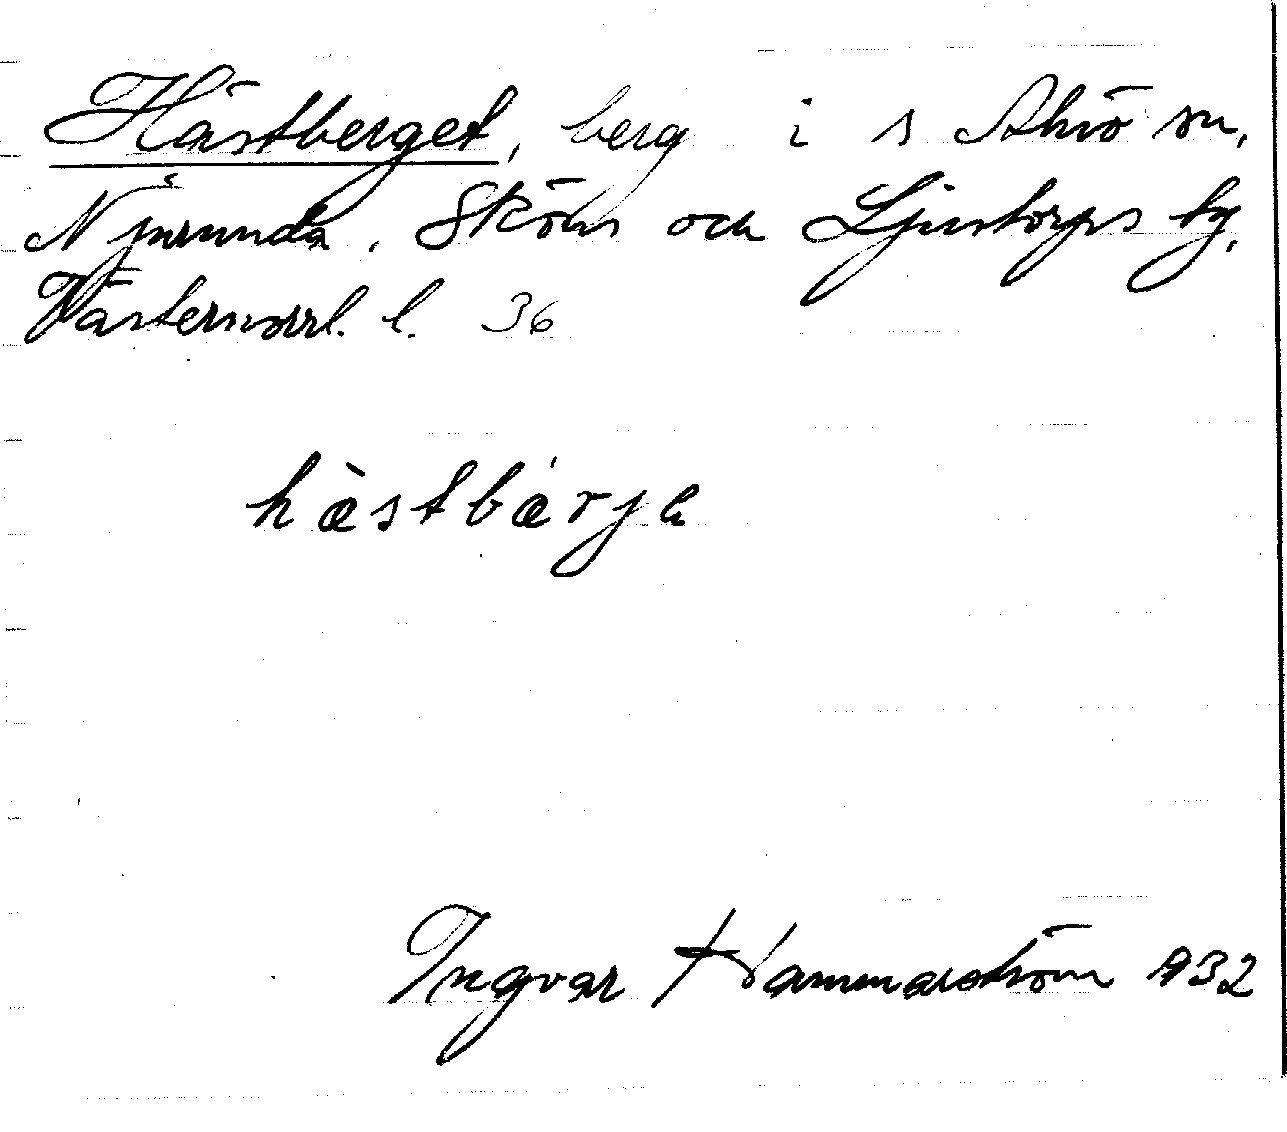 Hästberget, berg i s Alnö sn,
Njurunda, Sköns och Ljustorps tg,
Västernorrl. l. 36
hæ̀stbǽrjə
Ingvar Hammarström 1932